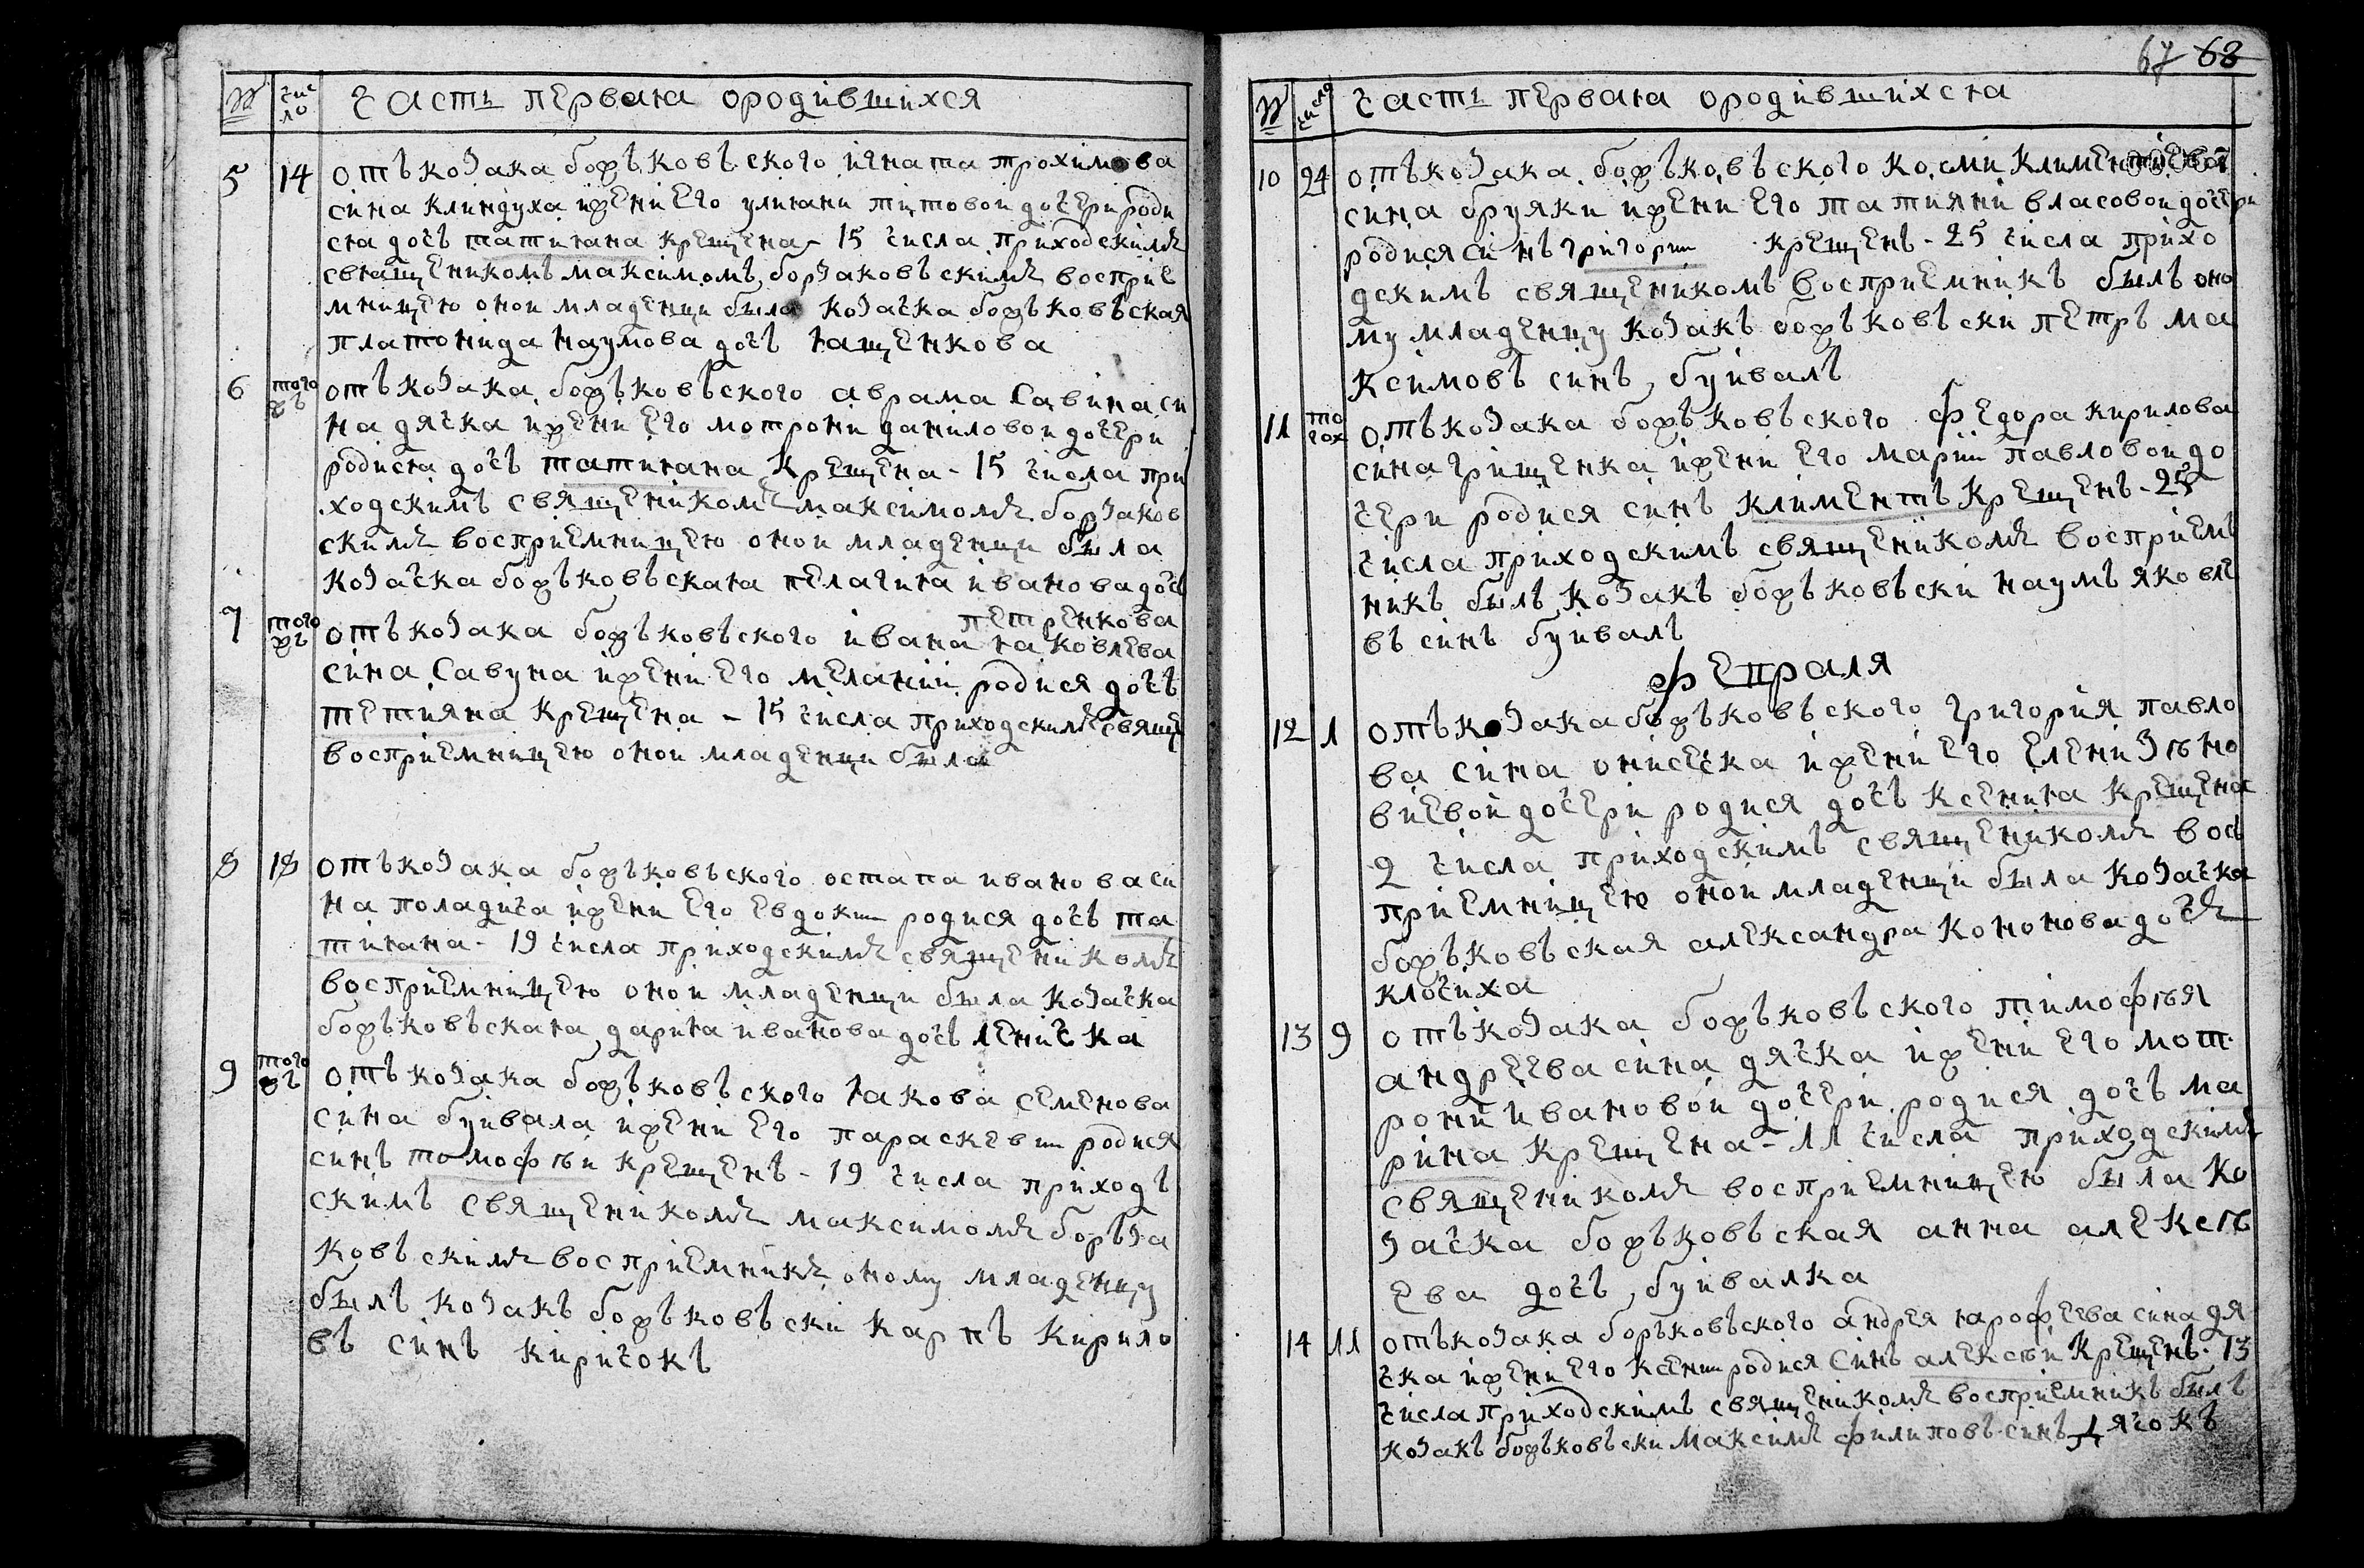 № чис
ло
Часть первая ородившихся
5 14 отъ козака божъковъского игната трохимова
сина клиндуха ижени его улияни титовои дочери роди
ся дочъ татияна крещена - 15 числа приходскимъ
священикомъ максимомъ борзаковъскимъ восприе
мницею онои младенци была козачка божъковъская
платонида наумова дочъ ященкова
6 того
жъ отъ козака божъковъского аврама савина си
на дячка ижени его мотрони даниловои дочери
родися дочъ татияна крещена - 15 числа при
ходскимъ священикомъ максимомъ борзаков
скимъ восприемницею онои младенци была
козачка божъковъская пелагия иванова дочъ
петренкова
7 того
жъ отъ козака божъковъского ивана яковлева
сина савуна ижени его меланий родися дочъ
тетияна крещена - 15 числа приходскимъ свяще
восприемницею онои младенци была
8 18 отъ козака божъковъского остапа иванова си
на поладича ижени его евдокии родися дочъ та
тияна - 19 числа приходскимъ священикомъ
восприемницею онои младенци была козачка
божъковъская дария иванова дочъ леничка
9 того
жъ отъ козака божъковъского якова семенова
сина буивала ижени его параскевии родися
синъ томофѣи крещенъ - 19 числа приходъ
скимъ священикомъ максимомъ боръза
ковъскимъ восприемникъ оному младенцу
былъ козакъ божъковъски карпъ кирило
въ синъ киричокъ
67 68
№ число
Часть первая ородившихся
10 24 отъ козака божъковъского косми климентиева
сина бруяки ижени его татияни власовои дочери
родися синъ григории крещенъ - 25 числа прихо
дскимъ священикомъ восприемникъ былъ оно
му младенцу козакъ божъковъски петръ ма
ксимовъ синъ буивалъ
11 то
гож отъ козака божъковъского федора кирилова
сина грищенка ижени его марий павловои до
чери родися синъ климентъ крещенъ - 25
числа приходскимъ священикомъ восприем
никъ былъ козакъ божъковъски наумъ яковле
въ синъ буивалъ
фепраля
12 1 отъ козака божъковъского григория павло
ва сина онисечка ижени его елени зѣно
виевой дочери родися дочъ ксения крещена
2 числа приходскимъ священикомъ вос
приемницею онои младенци была козачка
божъковъская александра кононова дочъ
клочиха
13 9 отъ козака божъковъского тимофѣя
андреева сина дячка ижени его мот
рони ивановой дочери родися дочъ ма
рина крещена - 11 числа приходскимъ
священикомъ восприемницею была ко
зачка божъковъская анна алексѣ
ева дочъ буивалка
14 11 отъ козака божъковъского андрея ярофеева сина дя
чка ижени его ксении родися синъ алексѣи крещенъ - 13
числа приходскимъ священикомъ восприемникъ былъ
козакъ божъковъски максимъ филиповъ синъ дячокъ